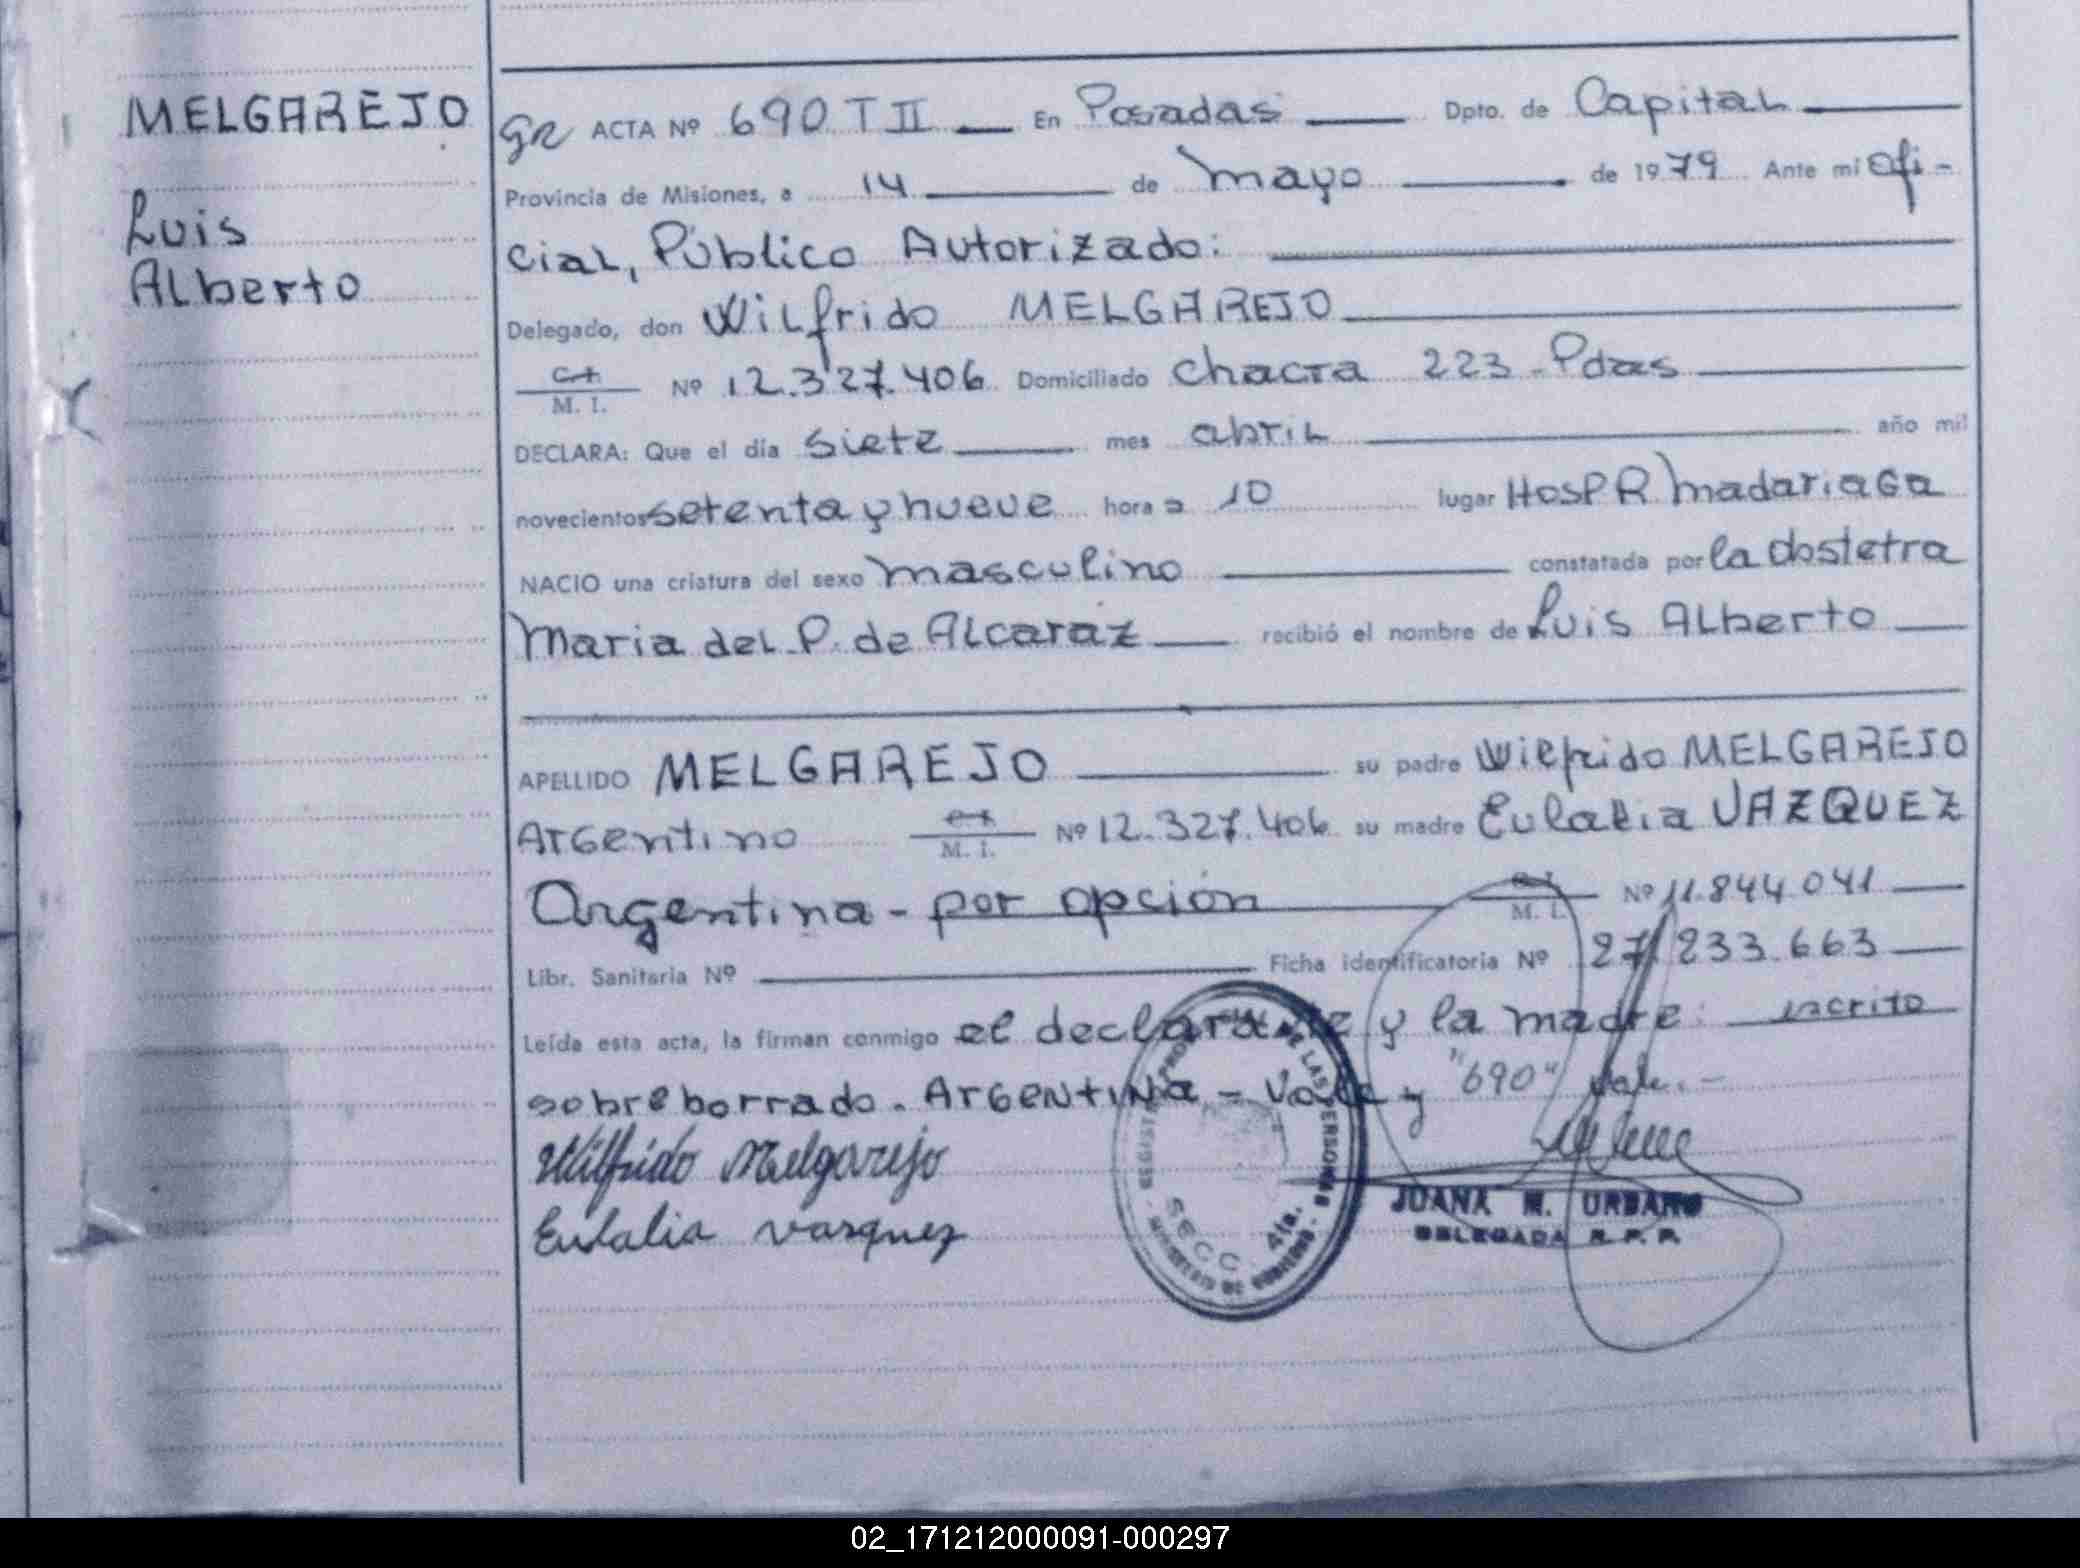 MELGAREJO
Luis
Alberto
ACTA Nº 690 T II En Posadas Dpto. de Capital
Provincia de Misiones, a 14 de mayo de 1979 Ante mi Ofi-
cial, Público Autorizado:
Delegado, don Wilfrido MELGAREJO
C.I.
M. I. Nº 12.327.406 Domiciliado Chacra 223 - Pdas
DECLARA: Que el día siete mes abril año mil
novecientos setenta y nueve hora a 10 lugar Hosp R. Madariaga
NACIO una criatura del sexo masculino constatada por la Obstetra
Maria del P. de Alcaraz recibió el nombre de Luis Alberto
APELLIDO MELGAREJO su padre Wilfrido MELGAREJO
Argentino M. I. Nº 12.327.406 su madre Eulalia VAZQUEZ
Argentina - por opción M. I. Nº 11.844.041
Libr. Sanitaria Nº Ficha identificatoria Nº 27.233.663
Leída esta acta, la firman conmigo el declarante y la madre: escrito
sobreborrado. Argentina - Vale y "690" vale.-
Wilfrido Melgarejo
Eulalia vasquez
DE LAS PERSONAS
SECC. 4ta.
MINISTERIO DE GOBIERNO
JUANA M. URBANO
DELEGADA R. P. P.
02_171212000091-000297